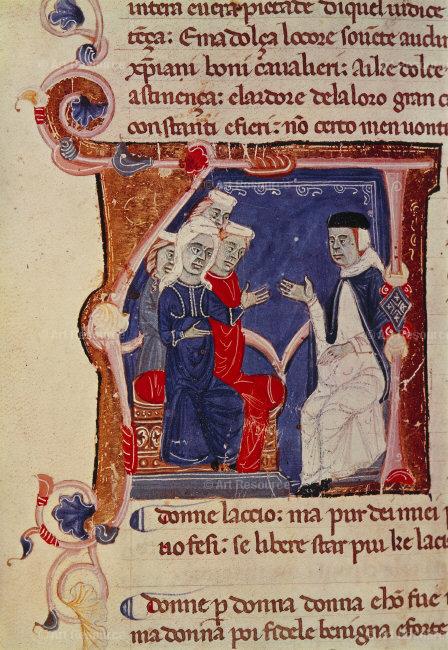 intera euera pietate diquel iudice
teça: Ema dolça locore souēte audir
xp̄iani boni cavalieri: Aike dolce
astinença: elardore dela loro gran
constanti efieri: nō certo men uomi
donne laccio: ma pur dei miei
no fesi: se libere star pui ke laci
donne p donna donna
ma donna poi fidele benigna eforte
© Art Resource